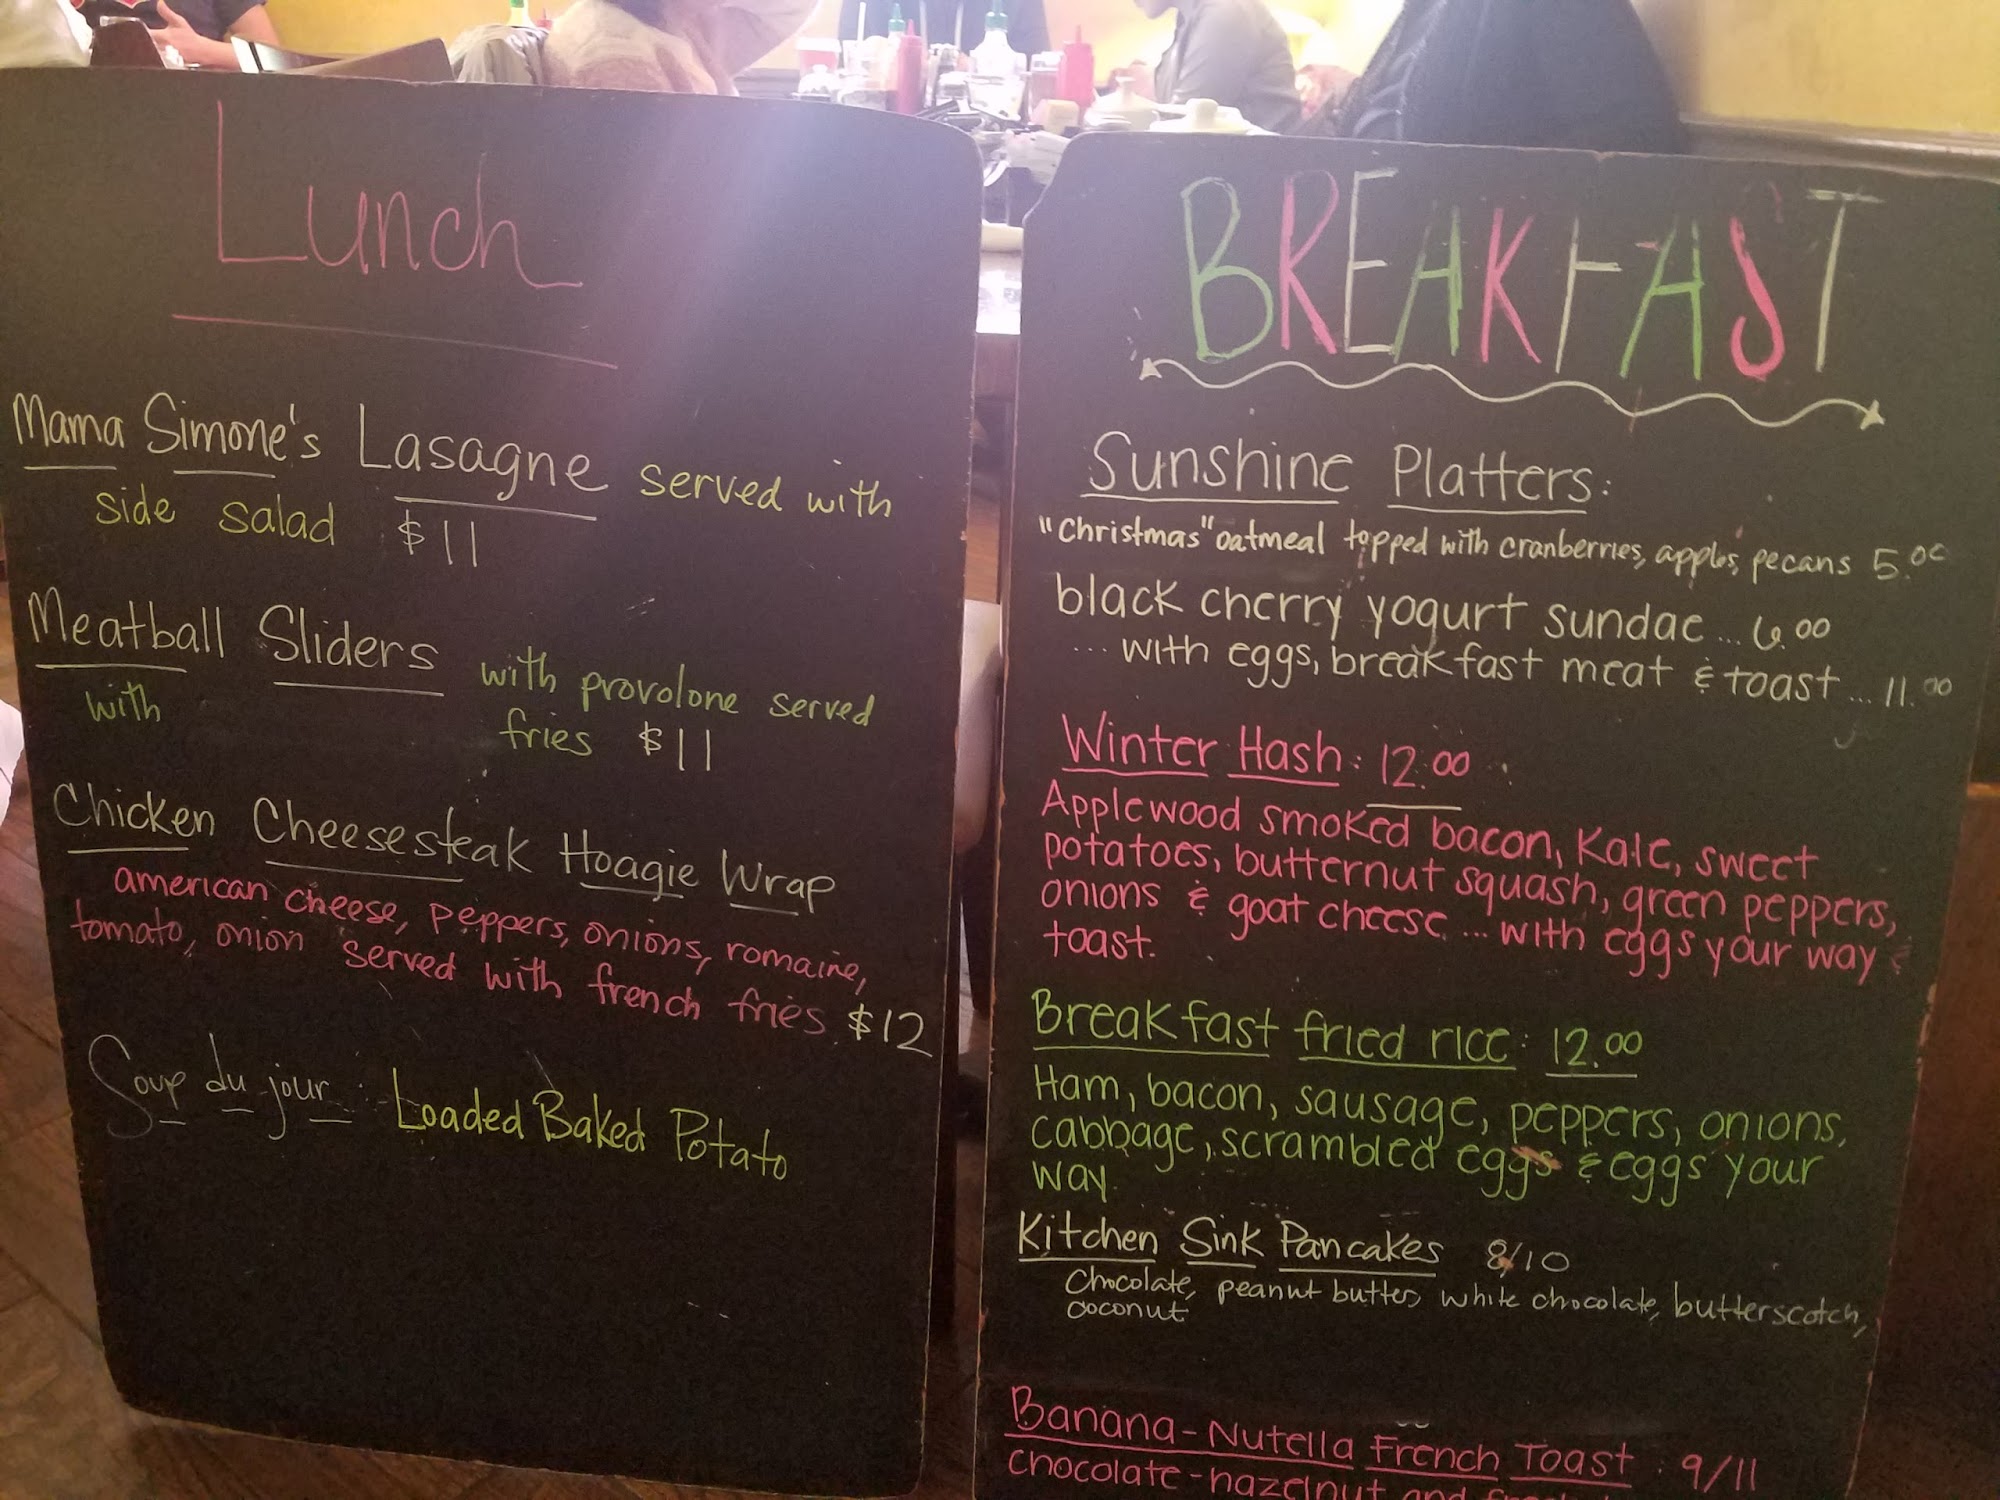 Lunch
Mama Simone's Lasagne served with
side salad $11
Meatball Sliders with provolone served
with fries $11
Chicken Cheesesteak Hoagie Wrap
american cheese, peppers, onions, romaine,
tomato, onion served with french fries $12
Soup du jour: Loaded Baked Potato
BREAKFAST
Sunshine Platters:
"Christmas" oatmeal topped with cranberries, apples, pecans 5.00
black cherry yogurt sundae...6.00
...with eggs, breakfast meat & toast...11.00
Winter Hash: 12.00
Applewood smoked bacon, Kale, sweet
potatoes, butternut squash, green peppers,
onions & goat cheese...with eggs your way &
toast.
Breakfast fried rice: 12.00
Ham, bacon, sausage, peppers, onions,
cabbage, scrambled eggs & eggs your
way.
Kitchen Sink Pancakes 8/10
Chocolate, peanut butter, white chocolate, butterscotch,
coconut
Banana-Nutella French Toast: 9/11
chocolate-hazelnut and